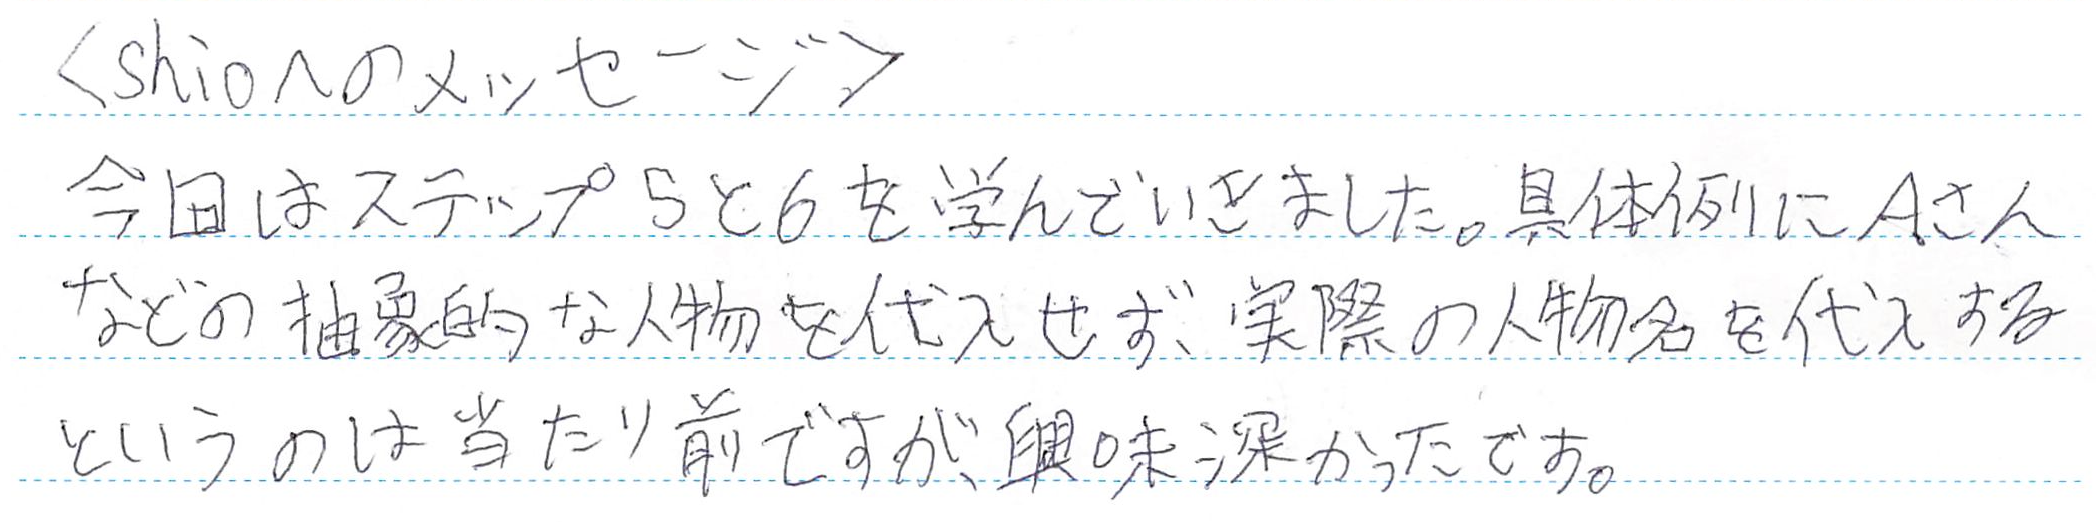 <shioへのメッセージ>
今日はステップ5と6を学んでいきました。具体例にAさん
などの抽象的な人物を代入せず、実際の人物名を代入する
というのは当たり前ですが、興味深かったです。